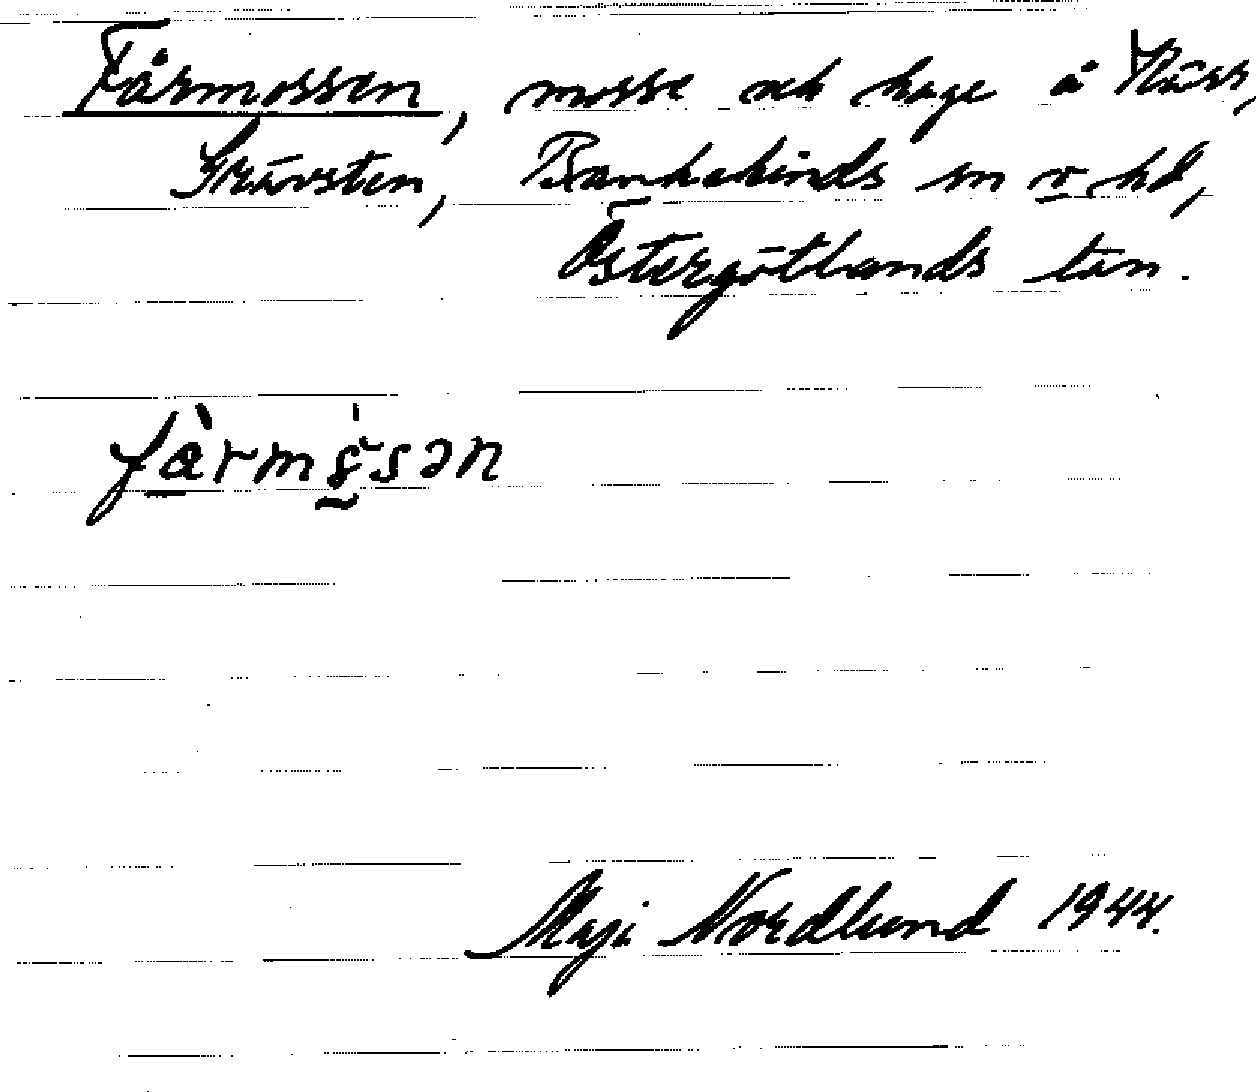 Fårmossen, mosse och hage å Näss,
Grävsten, Bankekinds sn o. hd,
Östergötlands län.
Maji Nordlund 1944.